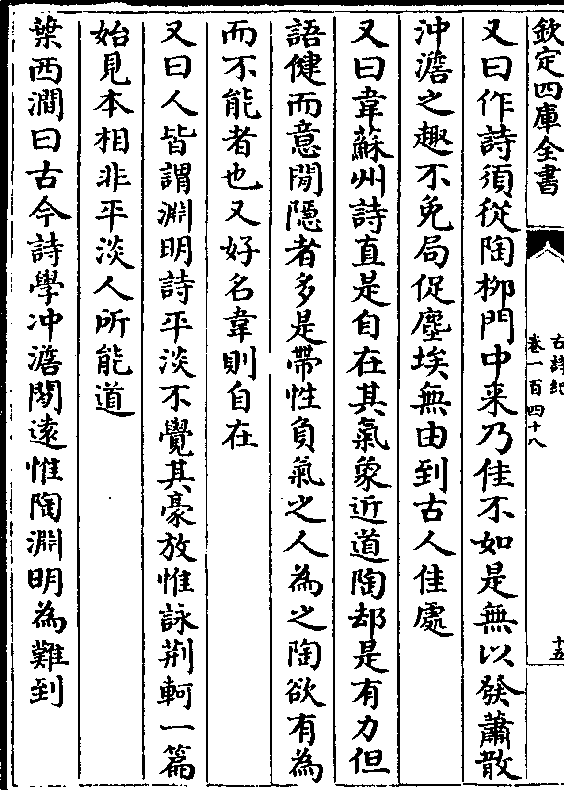 欽定四庫全書
古詩紀
卷一百四十八
十五
又曰作詩須從陶柳門中来乃佳不如是無以發蕭散
沖澹之趣不免局促塵埃無由到古人佳處
又曰韋蘇州詩直是自在其氣象近道陶却是有力但
語健而意閒隱者多是帶性負氣之人為之陶欲有為
而不能者也又好名韋則自在
又曰人皆謂淵明詩平淡不覺其豪放惟詠荆軻一篇
始見本相非平淡人所能道
葉西澗曰古今詩學冲澹閑逺惟陶淵明為難到